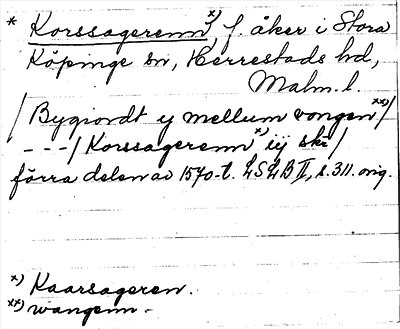 * Korssagerenn *), f. åker i Stora
Köpinge sn, Herrestads hd,
Malm. l.
/ Bygiordt y mellum vongen **) /
- - - / Korssagerenn *) iij skr /
förra delen av 1570-t. LSLB II, s. 311. orig.
*) Kaarsageren.
**) wangenn -